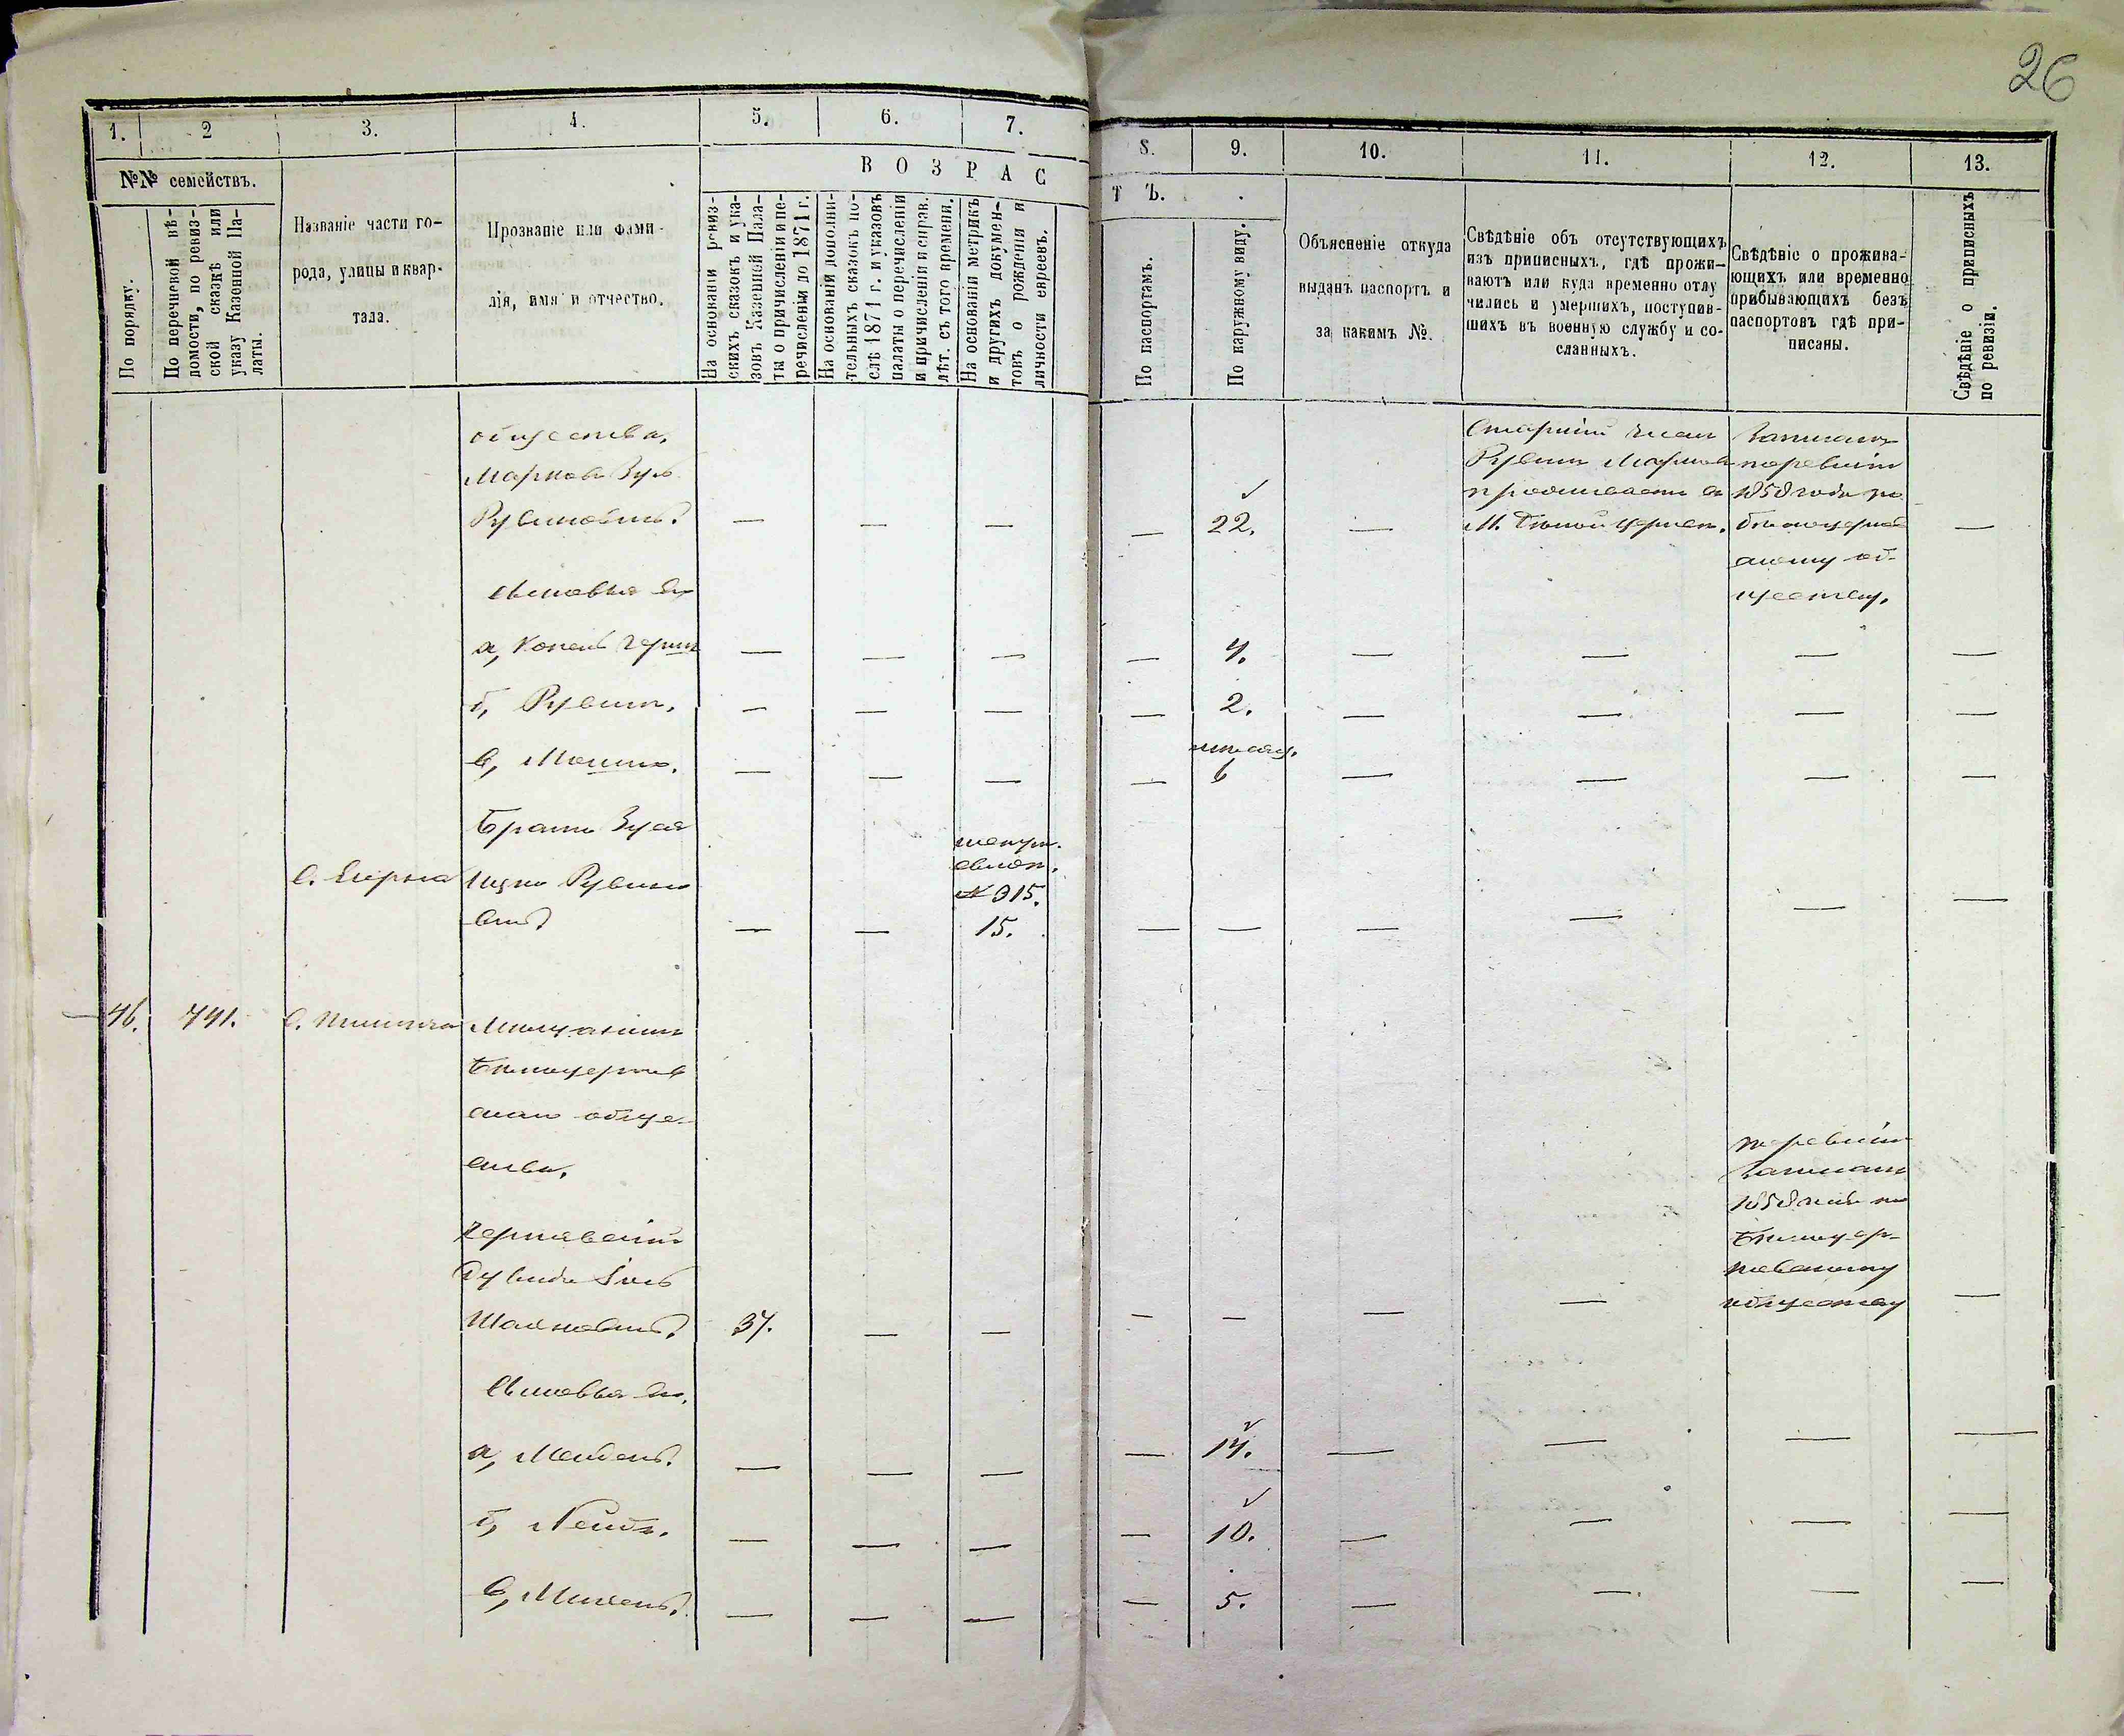 26
1. 2 3. 4. 5. 6. 7. 8. 9. 10. 11. 12. 13.
№№ семействъ.
По порядку.
По перечневой вѣ-
домости, по ревиз-
ской сказкѣ или
указу Казенной Па-
латы.
Названіе части го-
рода, улицы и квар-
тала.
Прозваніе или фами-
лія, имя и отчество.
ВОЗРАС
ТЪ.
На основаніи ревиз-
скихъ сказокъ и ука-
зовъ Казенной Пала-
ты о причисленіи и пе-
речисленіи до 1871 г.
На основаніи дополни-
тельныхъ сказокъ по-
слѣ 1871 г. и указовъ
палаты о перечисленіи
и причисленіи и справ.
лѣт. съ того времени.
На основаніи метрикъ
и другихъ докумен-
товъ о рожденіи и
личности евреевъ.
По паспортамъ.
По наружному виду.
Объясненіе откуда
выданъ паспортъ и
за какимъ №.
Свѣдѣніе объ отсутствующихъ
изъ приписныхъ, гдѣ прожи-
ваютъ или куда временно отлу
чились и умершихъ, поступив-
шихъ въ военную службу и со-
сланныхъ.
Свѣдѣніе о прожива-
ющихъ или временно
прибывающихъ безъ
паспортовъ гдѣ при-
писаны.
Свѣдѣніе о приписныхъ
по ревизіи.
общества.
Рувиновъ.
— — — — 22. — —
Рувинъ
проживаетъ въ
м. Бѣлой Церкви.
1858 года по
обществу.
Сыновья его
а, — — — — 4. — — — —
б, Рувинъ. — — — — 2. — — — —
в, Мошко. — — — — 6 — — — —
Братъ Зуся
Ицко Рувино
вичъ
№ 915.
— — 15. — — — — — —
46. 441. Мѣщанинъ
Бѣлоцерков
скаго обще-
ства.
Чернявскій
Шаяновичъ. 37. — — — — — — —
1858 года по
Бѣлоцер-
ковскому
обществу
Сыновья его.
а, Мендель. — — — — 14. — — — —
б, Лейба. — — — — 10. — — — —
в, — — — — 5. — — — —